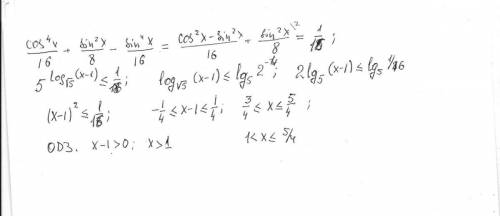 cos⁴x/16 + sin²x/8 - sin⁴x/16 = (cos²x - sin²x)/16 + sin²x/8 \² = 1/16 ;
5^(log_√5 (x-1)) ≤ 1/16 ; log_√5 (x-1) ≤ log₅ 2⁻⁴ ; 2log₅ (x-1) ≤ log₅ 1/16
(x-1)² ≤ 1/16 ; -1/4 ≤ x-1 ≤ 1/4 ; 3/4 ≤ x ≤ 5/4 ;
ОДЗ. x-1>0 ; x>1 1<x≤ 5/4